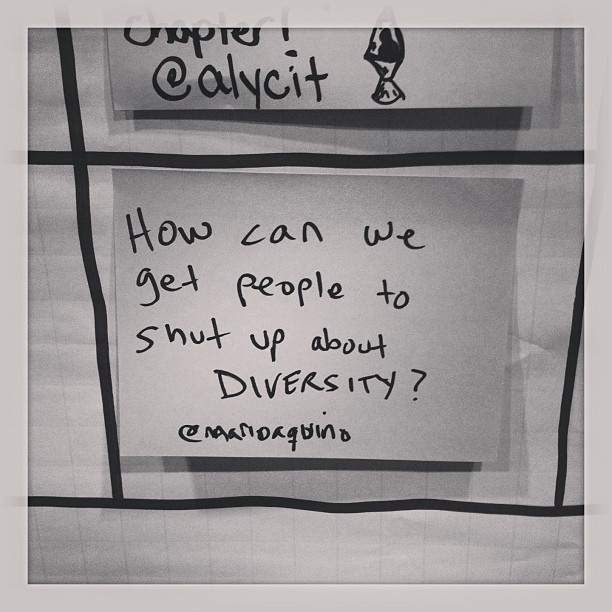 Chapter!
@alycit
How can we
get people to
shut up about
DIVERSITY?
@marioaquino